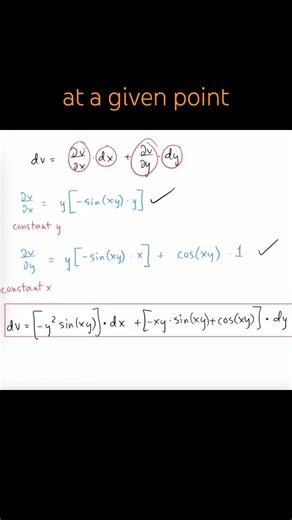 at a given point
dv = ∂v/∂x · dx + ∂v/∂y · dy
∂v/∂x = y[-sin(xy) · y] ✓
constant y
∂v/∂y = y[-sin(xy) · x] + cos(xy) · 1 ✓
constant x
dv = [-y² sin(xy)] · dx + [-xy · sin(xy) + cos(xy)] · dy